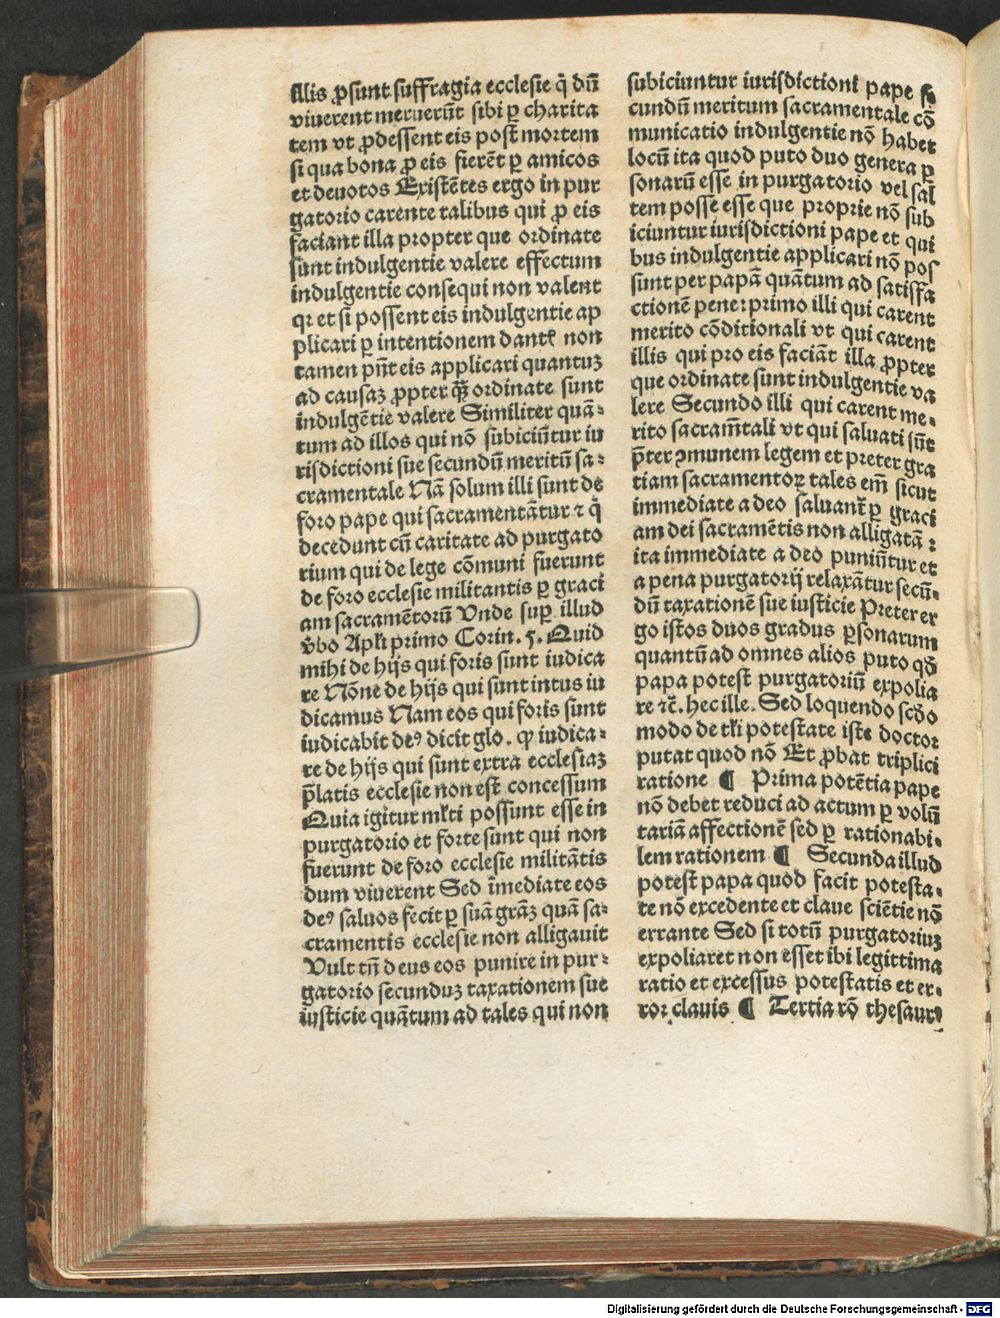 illis ꝓsunt suffragia ecclesie q̄ dū
viuerent meruerūt sibi ꝑ charita
tem vt ꝓdessent eis post mortem
si qua bona ꝓ eis fierēt ꝑ amicos
et deuotos Existētes ergo in pur
gatorio carente talibus qui ꝓ eis
faciant illa propter que ordinate
sunt indulgentie valere effectum
indulgentie consequi non valent
qꝛ et si possent eis indulgentie ap
plicari ꝑ intentionem dantꝭ non
tamen pn̄t eis applicari quantuꝫ
ad causaꝫ ꝓpter quā ordinate sunt
indulgētie valere Similiter quā⸗
tum ad illos qui nō subiciūtur iu
risdictioni sue secundū meritū sa⸗
cramentale Nā solum illi sunt de
foro pape qui sacramentātur ⁊ q̄
decedunt cū caritate ad purgato
rium qui de lege cōmuni fuerunt
de foro ecclesie militantis ꝑ graci
am sacramētorū Vnde suꝑ illud
v̄bo Apłi primo Corin. 5. Quid
mihi de hijs qui foris sunt iudica
re Nōne de hijs qui sunt intus iu
dicamus Nam eos qui foris sunt
iudicabit deꝰ dicit glo. ꝙ iudica⸗
re de hijs qui sunt extra ecclesiaꝫ
p̄latis ecclesie non est concessum
Quia igitur młti possunt esse in
purgatorio et forte sunt qui non
fuerunt de foro ecclesie militātis
dum viuerent Sed īmediate eos
deꝰ saluos fecit ꝑ suā grāꝫ quā sa⸗
cramentis ecclesie non alligauit
Vult tn̄ deus eos punire in pur⸗
gatorio secunduꝫ taxationem sue
iusticie quātum ad tales qui non
subiciuntur iurisdictioni pape se
cundū meritum sacramentale cō
municatio indulgentie nō habet
locū ita quod puto duo genera ꝑ
sonarū esse in purgatorio vel sal
tem posse esse que proprie nō sub
iciuntur iurisdictioni pape et qui
bus indulgentie applicari nō pos
sunt per papā quātum ad satisfa
ctionē pene: primo illi qui carent
merito cōditionali vt qui carent
illis qui pro eis faciāt illa ꝓpter
que ordinate sunt indulgentie va
lere Secundo illi qui carent me⸗
rito sacramētali vt qui saluati sūt
p̄ter ꝯmunem legem et preter gra
tiam sacramentoꝝ tales em̄ sicut
immediate a deo saluantꝛ ꝑ graci
am dei sacramētis non alligatā:
ita immediate a deo puniūtur et
a pena purgatorij relaxātur secū⸗
dū taxationē sue iusticie Preter er
go istos duos gradus ꝑsonarum
quantū ad omnes alios puto qđ
papa potest purgatoriū expolia
re ⁊c̄. hec ille. Sed loquendo scđo
modo de tłi potestate iste doctor
putat quod nō Et ꝓbat triplici
ratione ¶ Prima potētia pape
nō debet reduci ad actum ꝑ volū
tariā affectionē sed ꝑ rationabi⸗
lem rationem ¶ Secunda illud
potest papa quod facit potesta⸗
te nō excedente et claue sciētie nō
errante Sed si totū purgatoriuꝫ
expoliaret non esset ibi legittima
ratio et excessus potestatis et er⸗
ror clauis ¶ Tertia rō thesauri
Digitalisierung gefördert durch die Deutsche Forschungsgemeinschaft - DFG